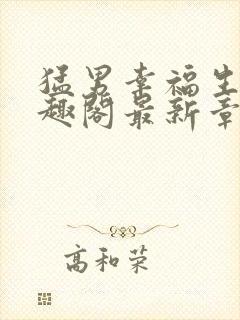 猛男幸福生
趣阁最新章
高和荣